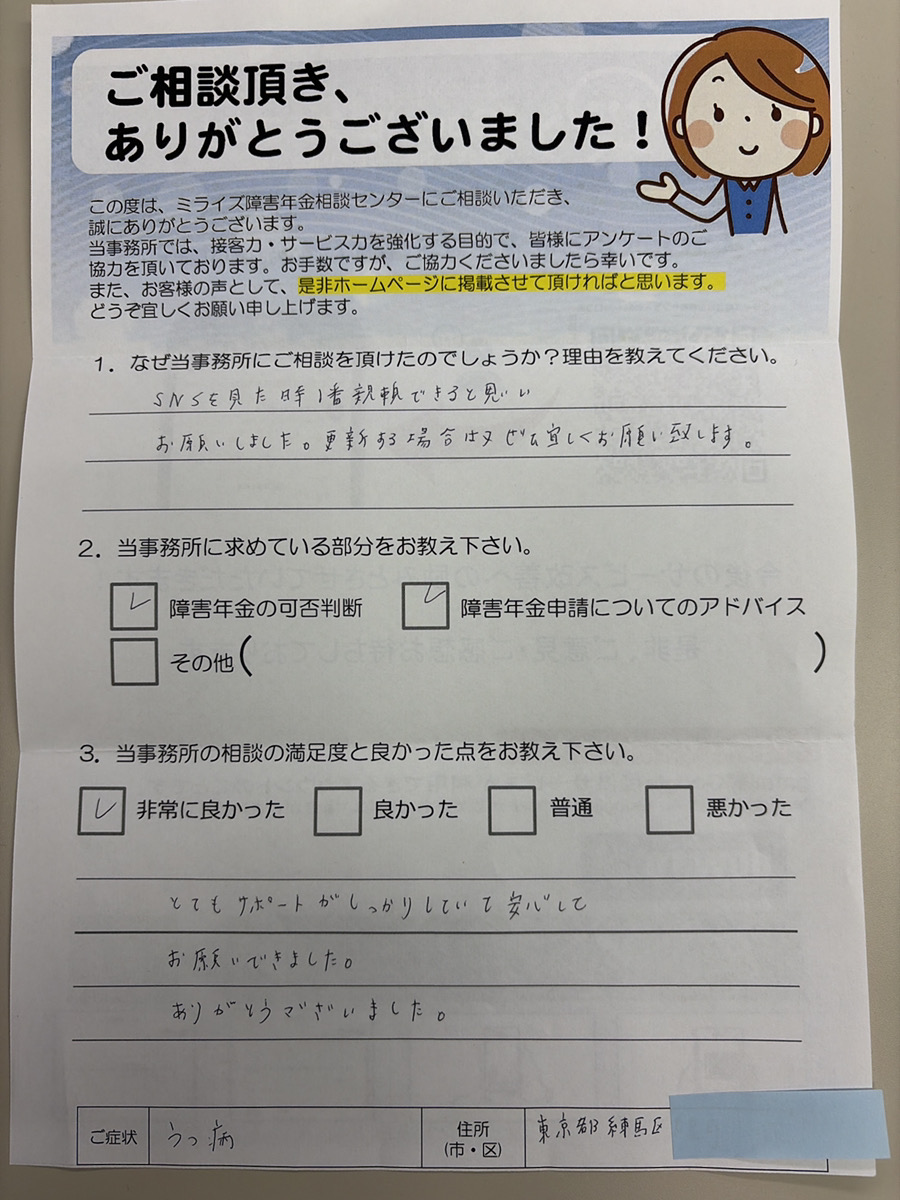 ご相談頂き、
ありがとうございました！
この度は、ミライズ障害年金相談センターにご相談いただき、
誠にありがとうございます。
当事務所では、接客力・サービス力を強化する目的で、皆様にアンケートのご
協力を頂いております。お手数ですが、ご協力くださいましたら幸いです。
また、お客様の声として、是非ホームページに掲載させて頂ければと思います。
どうぞ宜しくお願い申し上げます。
1．なぜ当事務所にご相談を頂けたのでしょうか？理由を教えてください。
SNSを見た時1番親頼できると思い
お願いしました。更新する場合は又ぜひ宜しくお願い致します。
2．当事務所に求めている部分をお教え下さい。
障害年金の可否判断 障害年金申請についてのアドバイス
その他（ ）
3．当事務所の相談の満足度と良かった点をお教え下さい。
非常に良かった 良かった 普通 悪かった
とてもサポートがしっかりしていて安心して
お願いできました。
ありがとうございました。
ご症状 うつ病 住所（市・区） 東京都練馬区